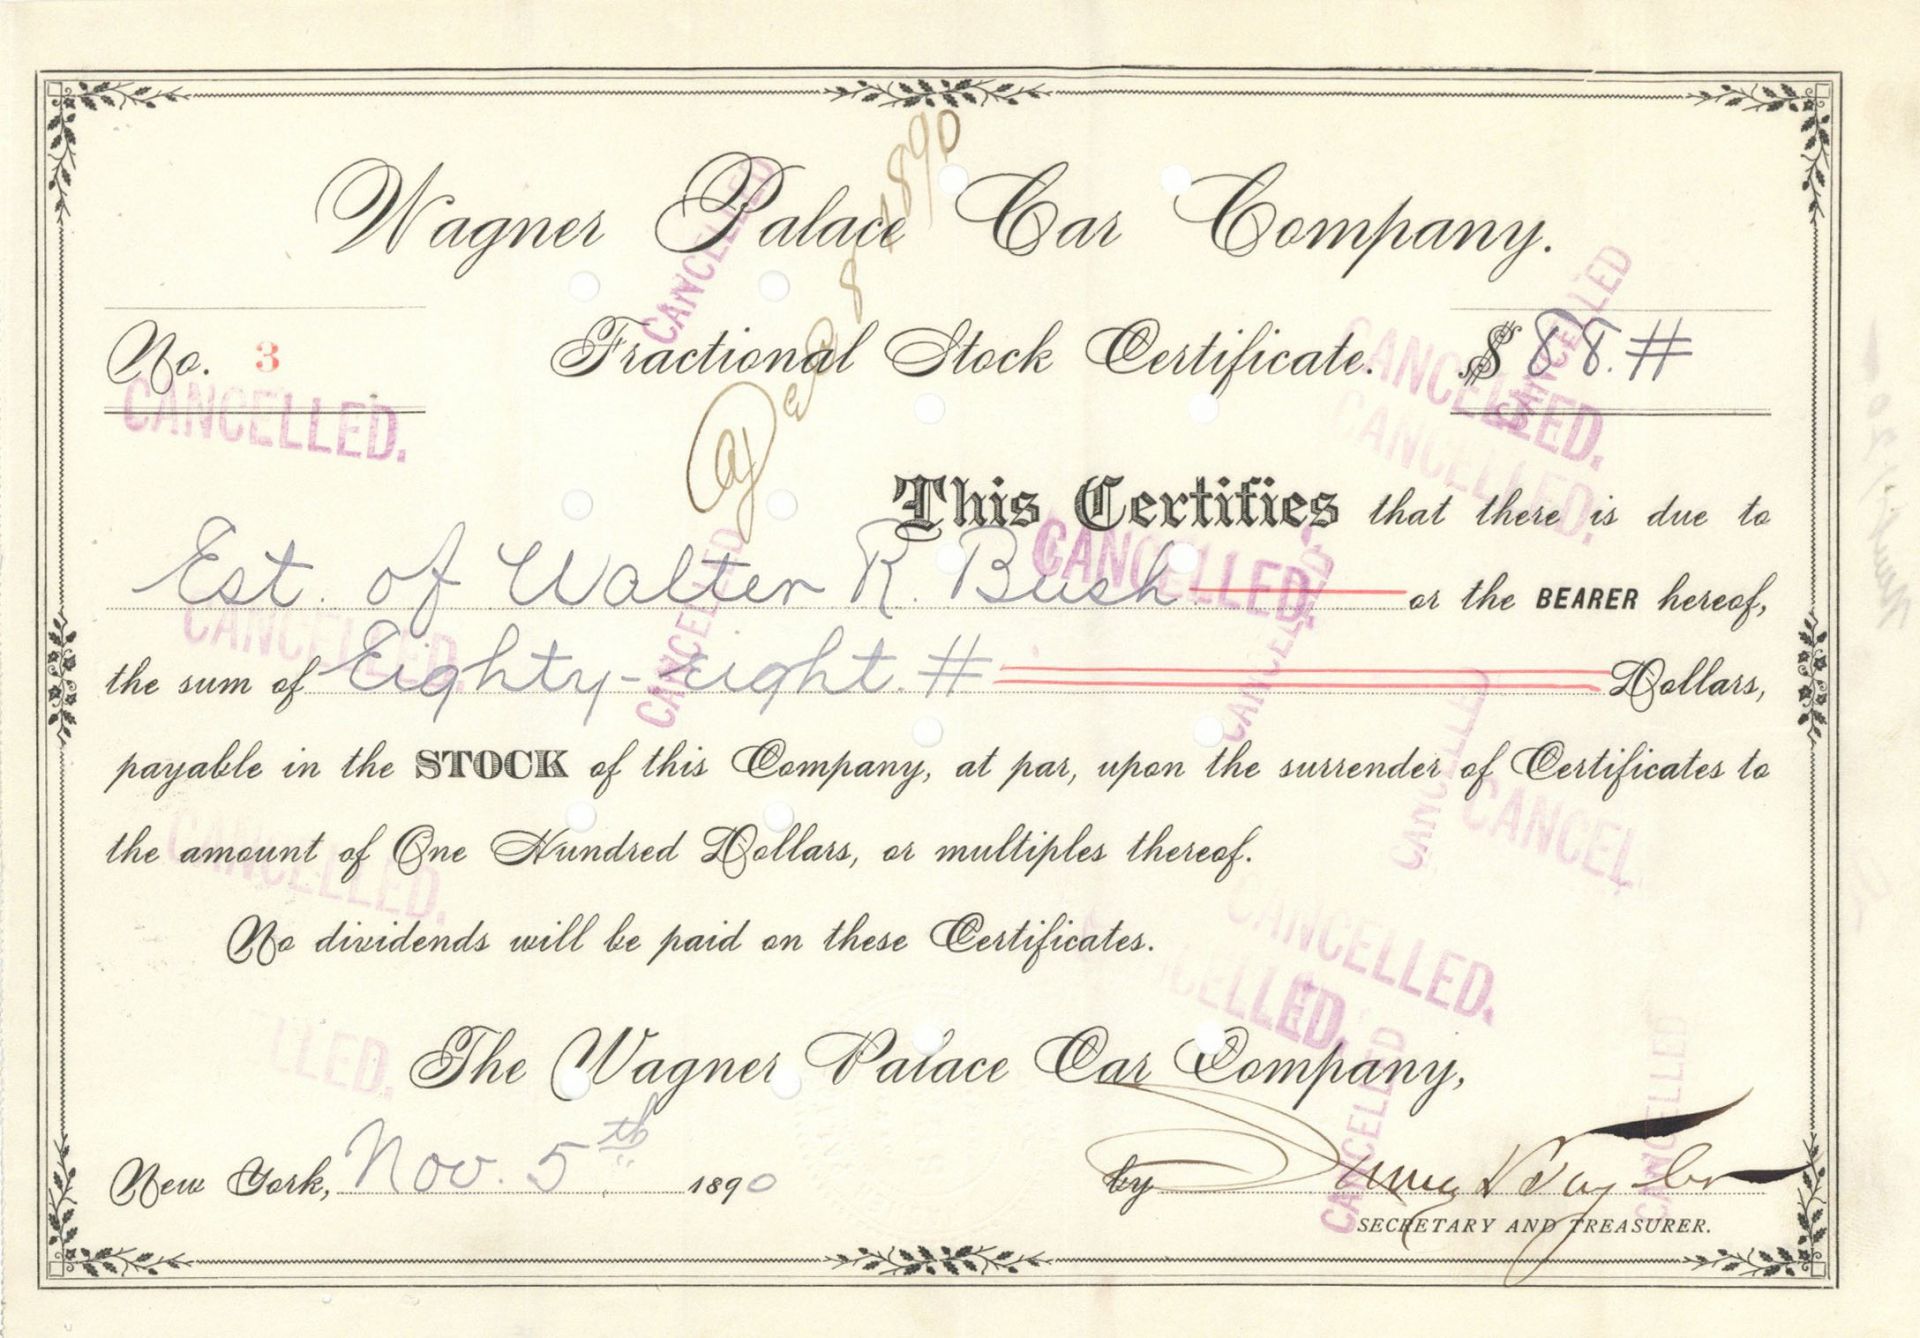 Wagner Palace Car Company.
No. 3
Fractional Stock Certificate.
$88.#
CANCELLED
CANCELLED.
CANCELLED
CANCELLED.
CANCELLED.
This Certifies that there is due to
Est. of Walter R. Bush or the BEARER hereof,
CANCELLED.
CANCELLED.
CANCELLED
the sum of Eighty-Eight # Dollars,
CANCELLED
payable in the STOCK of this Company, at par, upon the surrender of Certificates to
CANCELLED
CANCEL
the amount of One Hundred Dollars, or multiples thereof.
CANCELLED.
No dividends will be paid on these Certificates.
CANCELLED.
CELLED.
LLED.
The Wagner Palace Car Company,
New York, Nov. 5th 1890
by
CANCELLED
CANCELLED
SECRETARY AND TREASURER.
1890